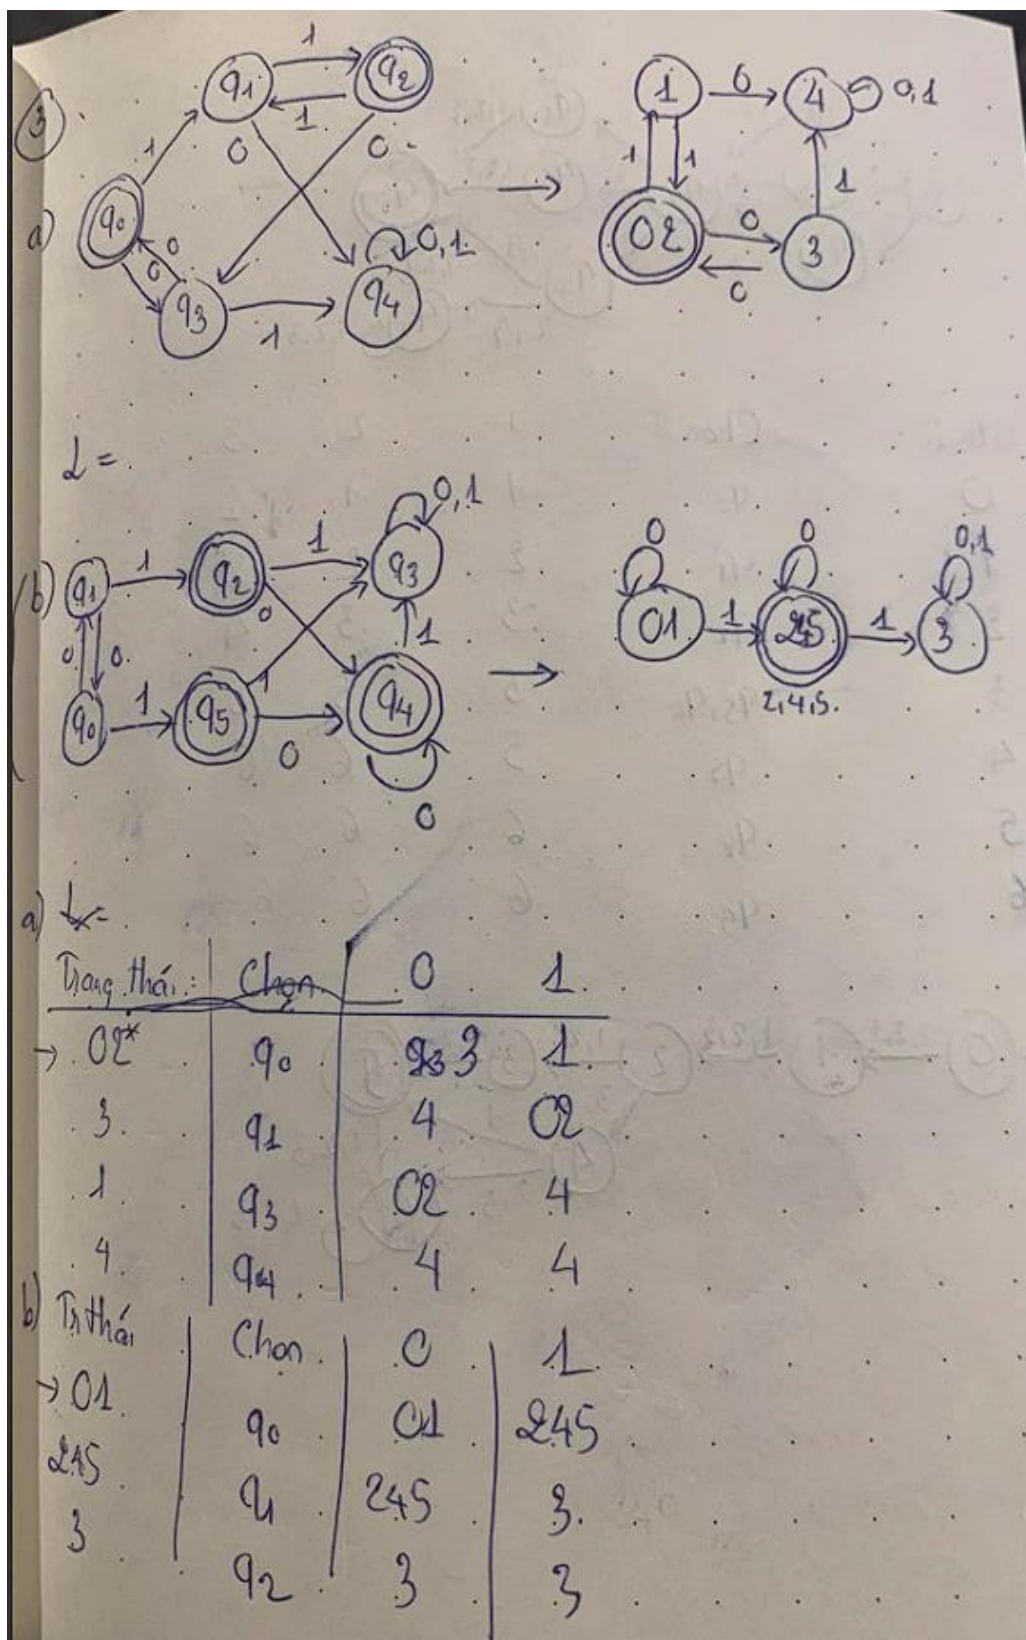 3
a)
1
q1
q2
1
1
0
0
q0
0
0
q3
1
q4
0,1
1
0
4
0,1
1
1
02
0
0
3
1
L =
b)
q1
1
q2
1
q3
0,1
0
0
0
1
1
q0
1
q5
0
q4
0
0
01
1
0
245
1
0,1
3
2,4,5.
a) L =
Trạng thái: Chọn 0 1
→ 02* q0 q3 3 1
3 q1 4 02
1 q3 02 4
4 q4 4 4
b) Tr thái Chọn 0 1
→ 01 q0 01 245
245 q1 245 3.
3 q2 3 3